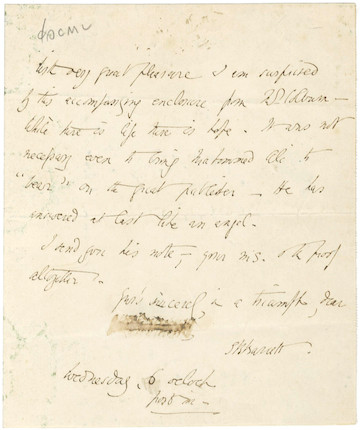 With very great pleasure I am surprised
by this accompanying enclosure from Mr Colburn –
While there is life there is hope. It was not
necessary even to bring
"bear" on the great publisher – He has
answered at last like an angel.
I send you his note –, your ms. & the proof
altogether.
Yours sincerely, in a triumph, dear
EBBarrett.
Wednesday 6 oclock
post in –